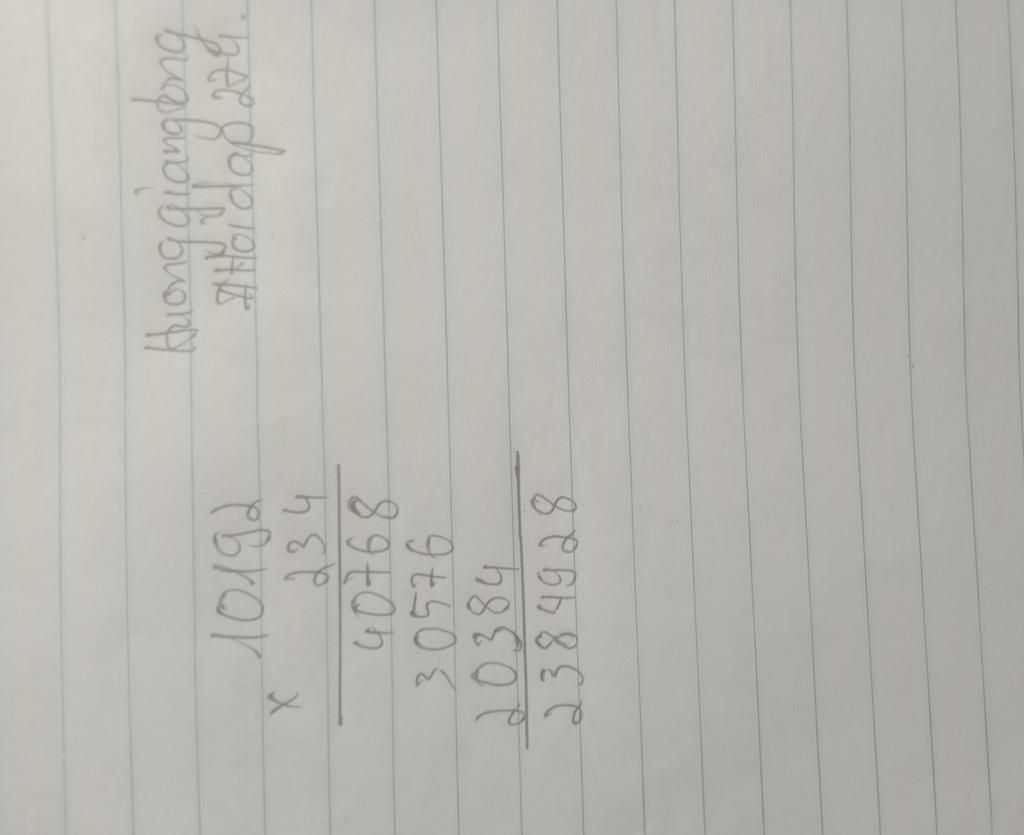 Huonggiangtong
#Hỏidap 274.
10192
x
234
40768
30576
20384
2384928